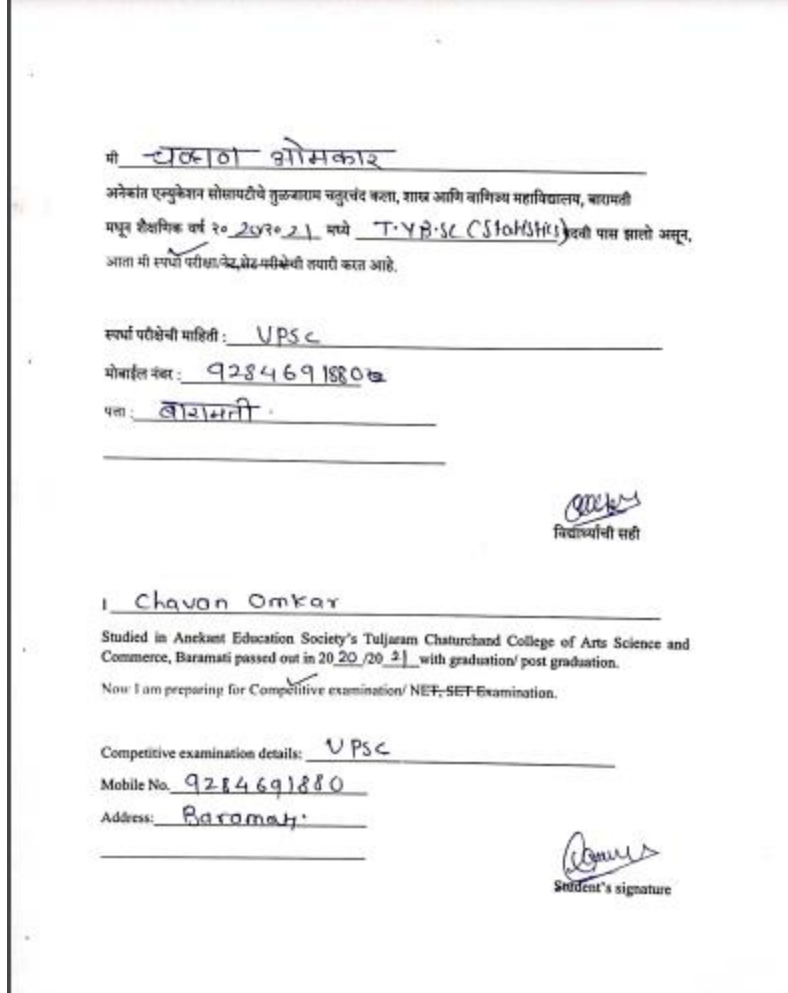 मी चव्हाण ओमकार
अनेकांत एज्युकेशन सोसायटीचे तुळजाराम चतुरचंद कला, शास्त्र आणि वाणिज्य महाविद्यालय, बारामती
मधून शैक्षणिक वर्ष २० 20/२० 21 मध्ये T.Y.B.SC (Statistics) पदवी पास झालो असून,
आता मी स्पर्धा परीक्षा/नेट,सेट परीक्षेची तयारी करत आहे.
स्पर्धा परीक्षेची माहिती : UPSC
मोबाईल नंबर : 9284691880
पत्ता : बारामती.
विद्यार्थ्यांची सही
I Chavan Omkar
Studied in Anekant Education Society's Tuljaram Chaturchand College of Arts Science and
Commerce, Baramati passed out in 20 20 /20 21 with graduation/ post graduation.
Now I am preparing for Competitive examination/ NET, SET Examination.
Competitive examination details: UPSC
Mobile No. 9284691880
Address: Baramati.
Student's signature